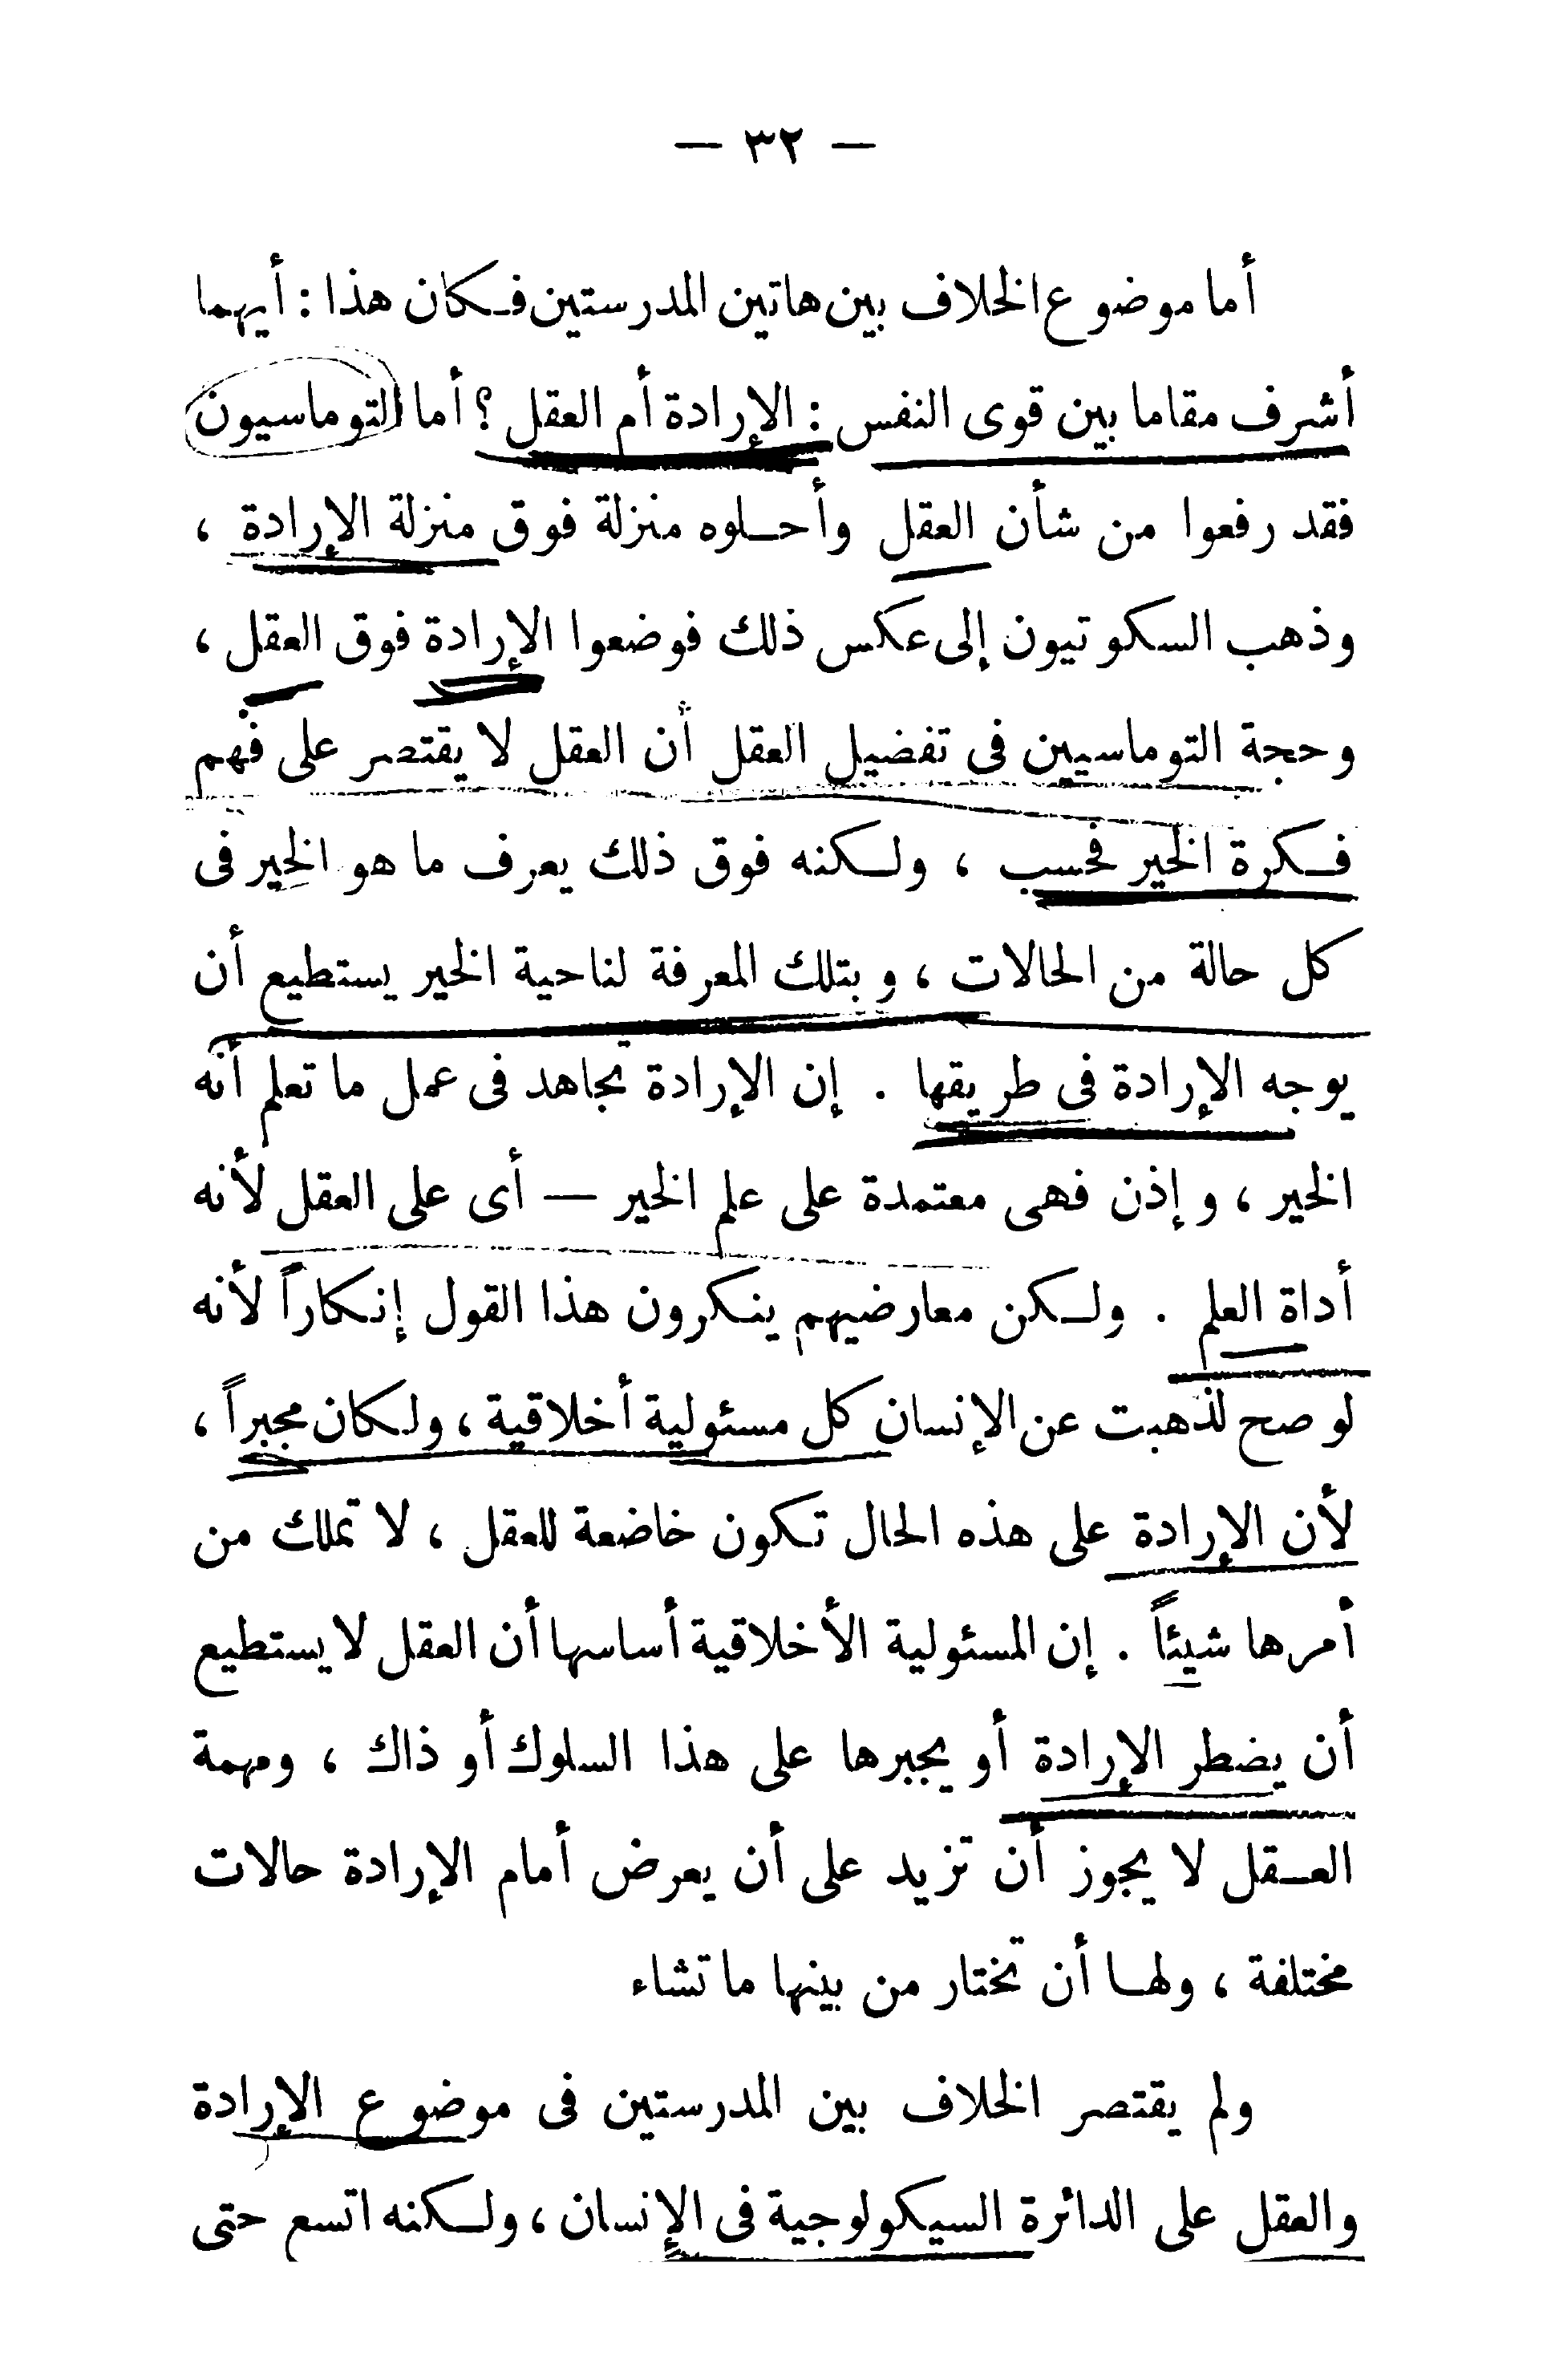 — ٣٢ —
أما موضوع الخلاف بين هاتين المدرستين فكان هذا : أيهما
أشرف مقاما بين قوى النفس : الإرادة أم العقل ؟ أما التوماسيون
فقد رفعوا من شأن العقل وأحلوه منزلة فوق منزلة الإرادة ،
وذهب السكوتيون إلى عكس ذلك فوضعوا الإرادة فوق العقل ،
وحجة التوماسيين فى تفضيل العقل أن العقل لا يقتصر على فهم
فكرة الخير فحسب ، ولكنه فوق ذلك يعرف ما هو الخير فى
كل حالة من الحالات ، وبتلك المعرفة لناحية الخير يستطيع أن
يوجه الإرادة فى طريقها . إن الإرادة تجاهد فى عمل ما تعلم أنه
الخير ، وإذن فهى معتمدة على علم الخير — أى على العقل لأنه
أداة العلم . ولكن معارضيهم ينكرون هذا القول إنكاراً لأنه
لو صح لذهبت عن الإنسان كل مسئولية أخلاقية ، ولكان مجبراً ،
لأن الإرادة على هذه الحال تكون خاضعة للعقل ، لا تملك من
أمرها شيئاً . إن المسئولية الأخلاقية أساسها أن العقل لا يستطيع
أن يضطر الإرادة أو يجبرها على هذا السلوك أو ذاك ، ومهمة
العقل لا يجوز أن تزيد على أن يعرض أمام الإرادة حالات
مختلفة ، ولها أن تختار من بينها ما تشاء
ولم يقتصر الخلاف بين المدرستين فى موضوع الإرادة
والعقل على الدائرة السيكولوجية فى الإنسان ، ولكنه اتسع حتى